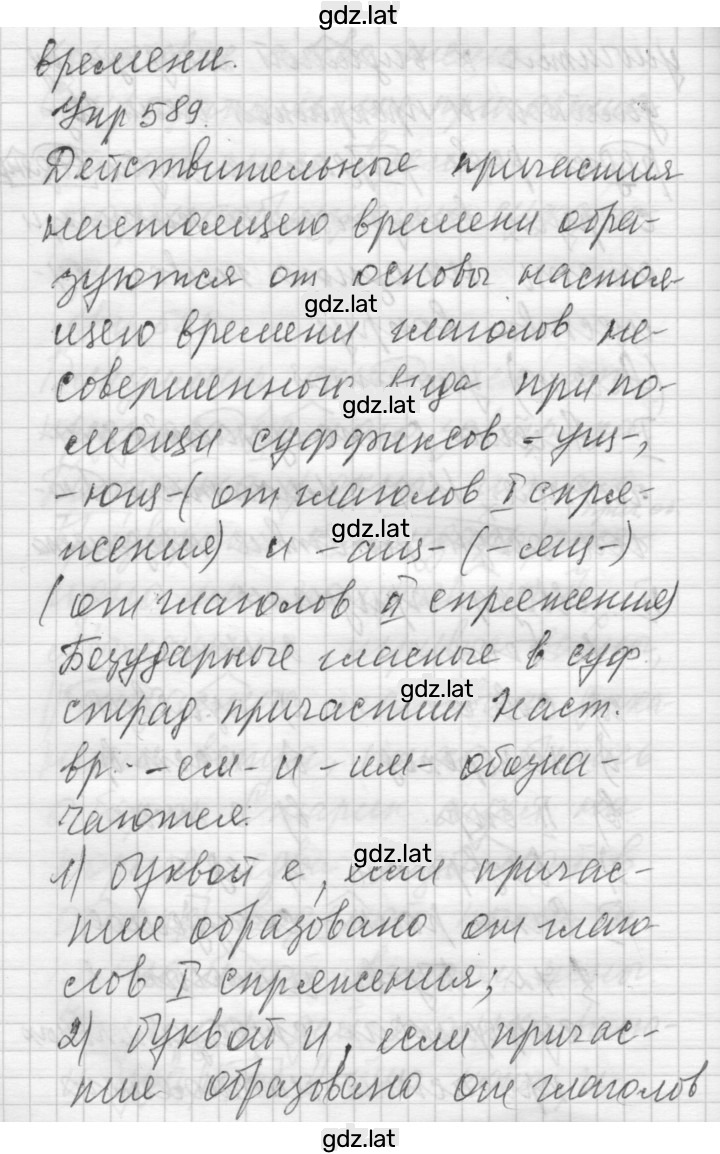 gdz.lat
времени.
Упр 589.
Действительные причастия
настоящего времени обра-
зуются от основы настоя-
gdz.lat
щего времени глаголов не-
совершенного вида при по-
gdz.lat
мощи суффиксов -ущ-,
-ющ- (от глаголов I спря-
gdz.lat
жения) и -ащ- (-ящ-)
(от глаголов II спряжения)
Безударные гласные в суф.
gdz.lat
страд. причастий наст.
вр. -ем- и -им- обозна-
чаются:
gdz.lat
1) буквой е, если причас-
тие образовано от глаго
лов I спряжения;
2) буквой и, если причас-
тие образовано от глаголов
gdz.lat